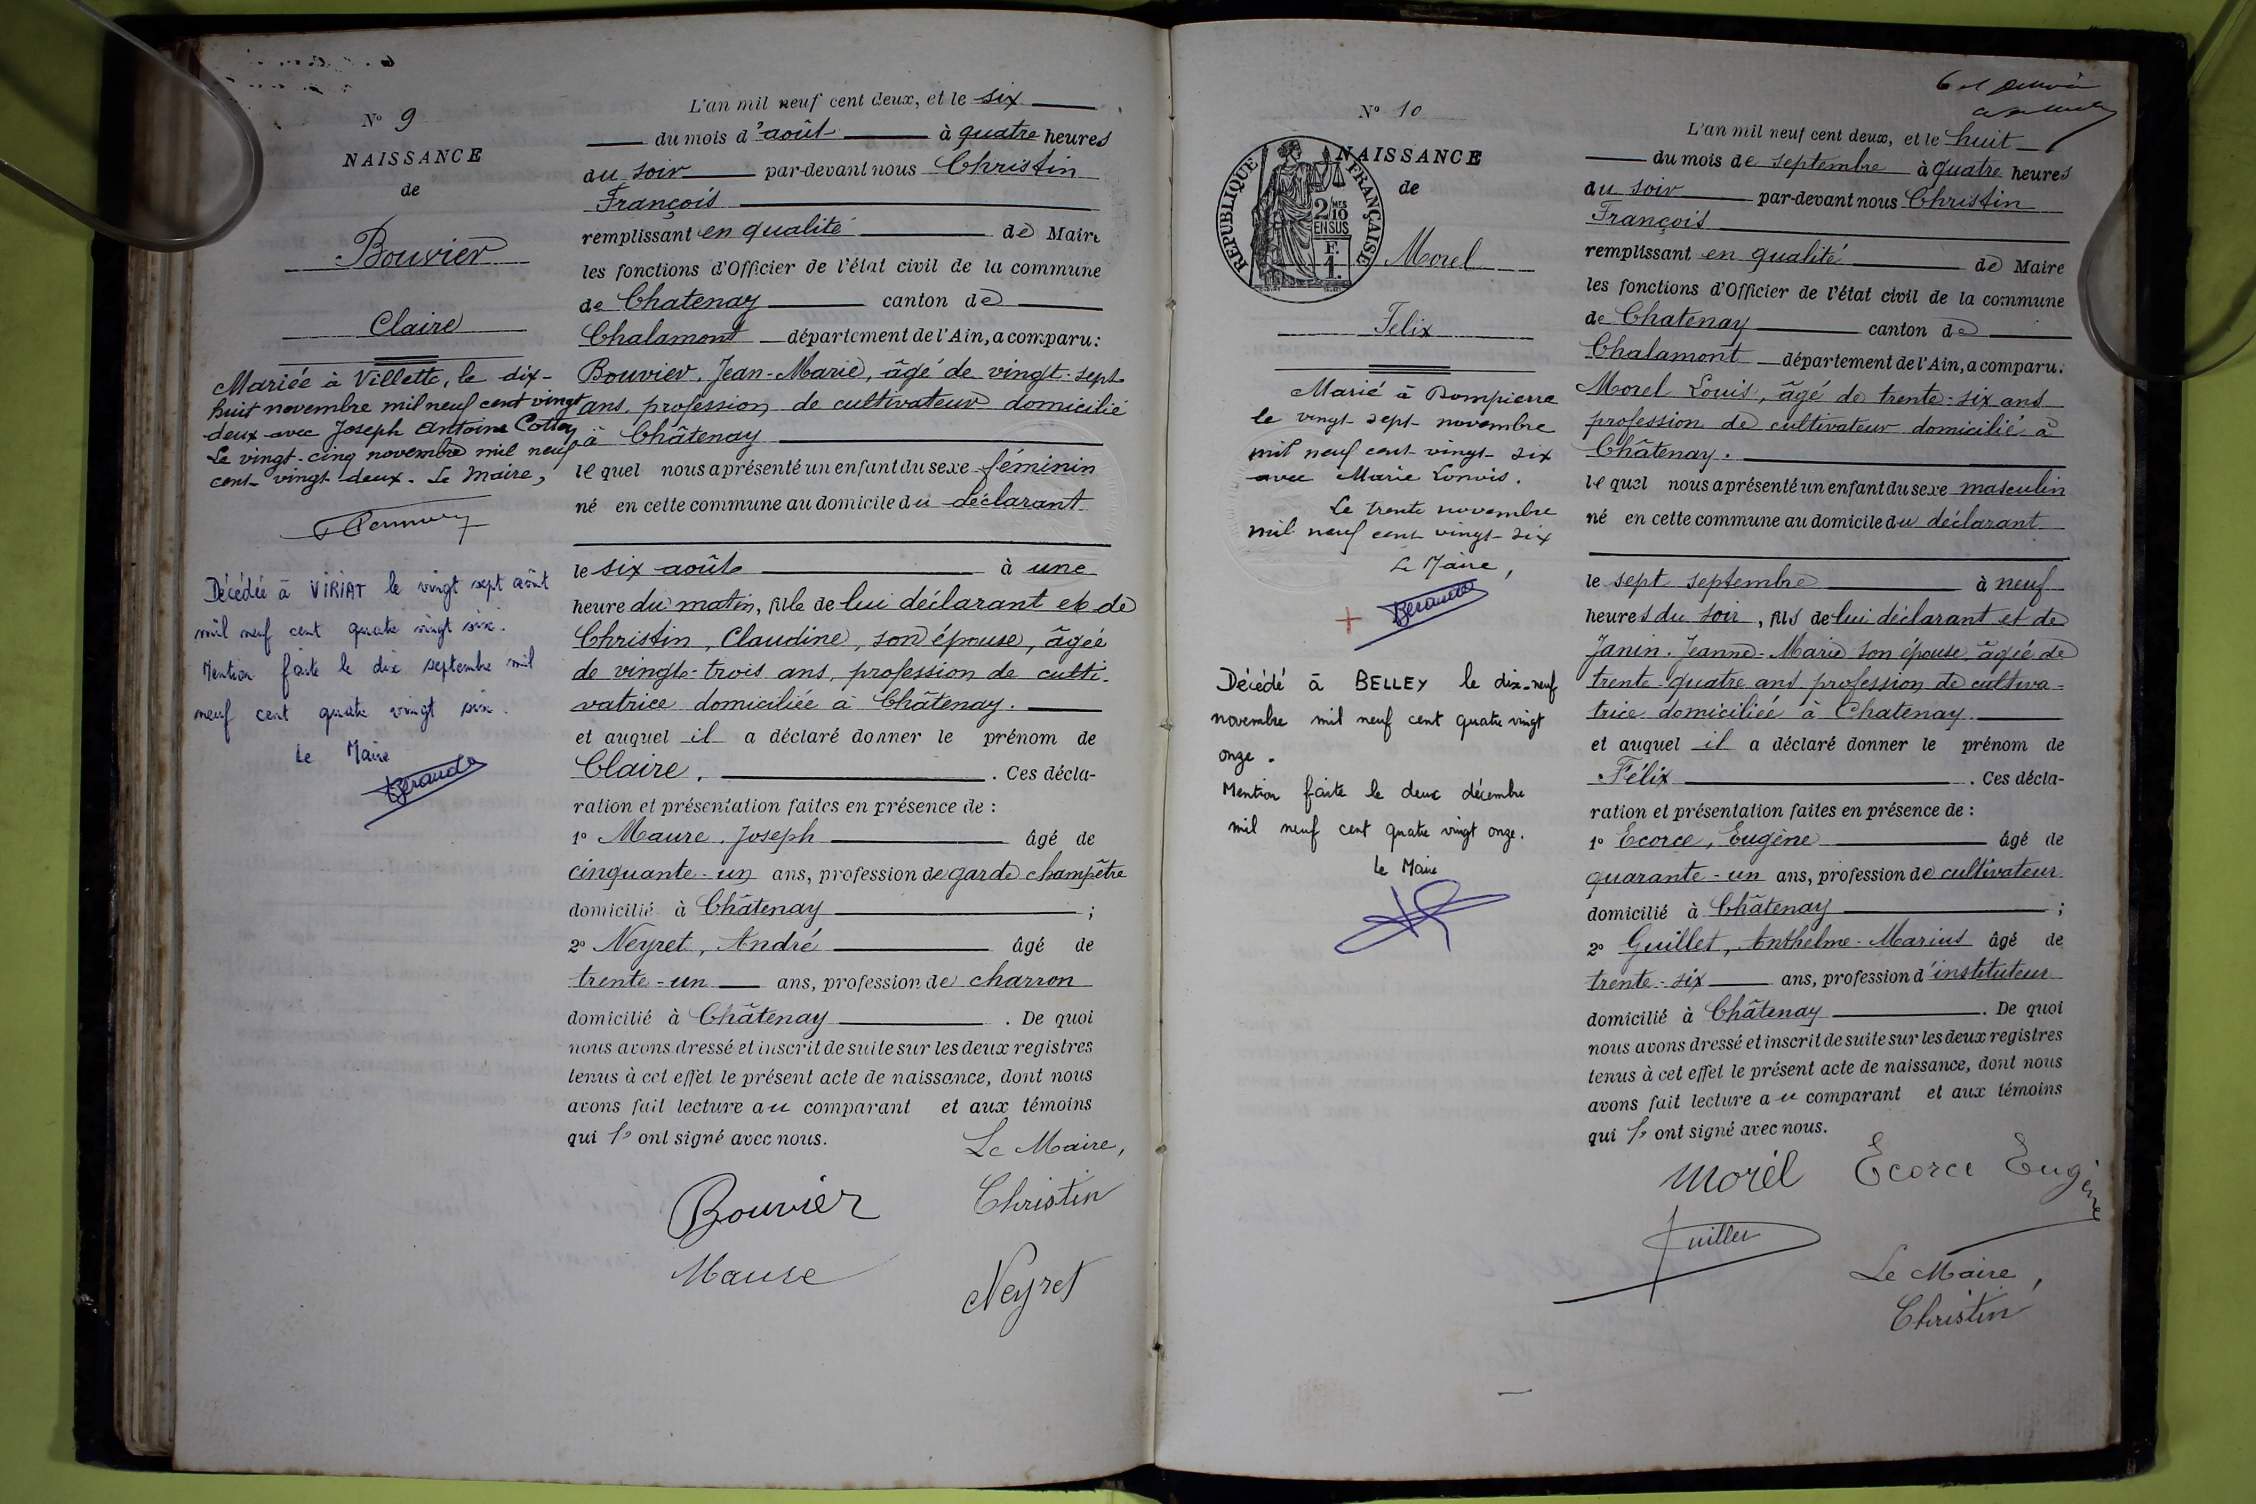 N° 9
NAISSANCE
de
Bouvier
Claire
Mariée à Villette, le dix-
huit novembre mil neuf cent vingt
deux avec Joseph Antoine Cottey
Le vingt-cinq novembre mil neuf
cent vingt deux. Le Maire,
Décédée à VIRIAT le vingt sept août
mil neuf cent quatre vingt six.
Mention faite le dix septembre mil
neuf cent quatre vingt six.
Le Maire
L'an mil neuf cent deux, et le six
du mois d'août à quatre heures
du soir par-devant nous Christin
François
remplissant en qualité de Maire
les fonctions d'Officier de l'état civil de la commune
de Chatenay canton de
Chalamont département de l'Ain, a comparu:
Bouvier, Jean-Marie, âgé de vingt-sept
ans, profession de cultivateur domicilié
à Châtenay
lequel nous a présenté un enfant du sexe féminin
né en cette commune au domicile du déclarant
le six août à une
heure du matin, fille de lui déclarant et de
Christin, Claudine, son épouse, âgée
de vingt-trois ans, profession de culti-
vatrice domiciliée à Châtenay.
et auquel il a déclaré donner le prénom de
Claire, . Ces décla-
ration et présentation faites en présence de :
1° Maure, Joseph âgé de
cinquante-un ans, profession de garde champêtre
domicilié à Châtenay ;
2° Neyret, André âgé de
trente-un ans, profession de charron
domicilié à Châtenay . De quoi
nous avons dressé et inscrit de suite sur les deux registres
tenus à cet effet le présent acte de naissance, dont nous
avons fait lecture au comparant et aux témoins
qui l' ont signé avec nous.
Le Maire,
Bouvier Christin
Maure Neyret
N° 10
NAISSANCE
de
REPUBLIQUE FRANÇAISE
2/10 MES
EN SUS
F.
1.
Morel
Felix
Marié à Dompierre
le vingt-sept novembre
mil neuf cent vingt-six
avec Marie Lonvis.
Le trente novembre
mil neuf cent vingt-six
Le Maire,
Décédé à BELLEY le dix-neuf
novembre mil neuf cent quatre vingt
onze.
Mention faite le deux décembre
mil neuf cent quatre vingt onze.
Le Maire
L'an mil neuf cent deux, et le huit
du mois de septembre à quatre heures
du soir par-devant nous Christin
François
remplissant en qualité de Maire
les fonctions d'Officier de l'état civil de la commune
de Chatenay canton de
Chalamont département de l'Ain, a comparu:
Morel Louis, âgé de trente-six ans
profession de cultivateur domicilié à
Châtenay.
lequel nous a présenté un enfant du sexe masculin
né en cette commune au domicile du déclarant
le sept septembre à neuf
heures du soir, fils de lui déclarant et de
Janin, Jeanne-Marie son épouse, âgée de
trente-quatre ans profession de cultiva-
trice domiciliée à Chatenay
et auquel il a déclaré donner le prénom de
Félix . Ces décla-
ration et présentation faites en présence de :
1° Ecorce, Eugène âgé de
quarante-un ans, profession de cultivateur
domicilié à Châtenay ;
2° Guillet, Anthelme-Marius âgé de
trente-six ans, profession d'instituteur
domicilié à Châtenay . De quoi
nous avons dressé et inscrit de suite sur les deux registres
tenus à cet effet le présent acte de naissance, dont nous
avons fait lecture au comparant et aux témoins
qui l' ont signé avec nous.
Morél Ecorce Eugène
Guillet
Le Maire,
Christin